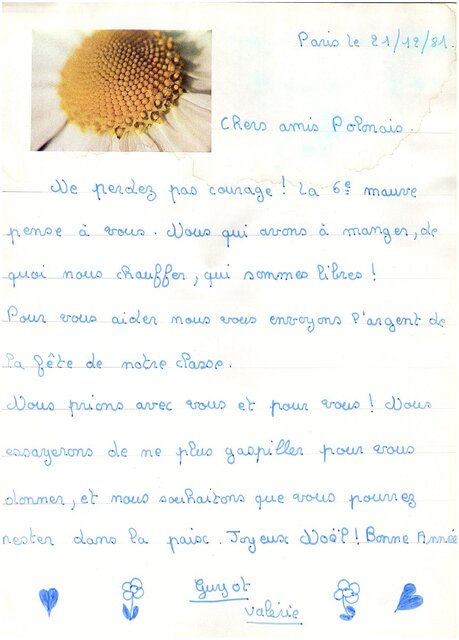 Paris le 21/12/81.
Chers amis Polonais.
Ne perdez pas courage ! la 6e mauve
pense à vous. Nous qui avons à manger, de
quoi nous chauffer, qui sommes libres !
Pour vous aider nous vous envoyons l'argent de
la fête de notre classe.
Nous prions avec vous et pour vous ! Nous
essayerons de ne plus gaspiller pour vous
donner, et nous souhaitons que vous pourrez
rester dans la paix. Joyeux Noël ! Bonne Année
Guyot
Valérie